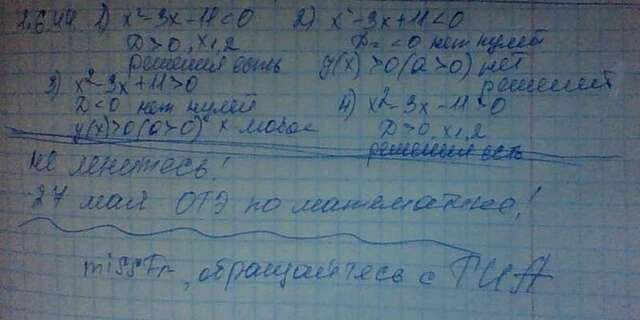 1.6.44 1) x²-3x-11<0 2) x²-3x+11<0
D>0, x1,2 D<0 нет нулей
решения есть y(x)>0 (a>0) нет решений
3) x²-3x+11>0
D<0 нет нулей 4) x²-3x-11>0
y(x)>0 (a>0) x любое D>0, x1,2
решения есть
не ленитесь!
27 мая ОГЭ по математике!
обращайтесь с ГИА